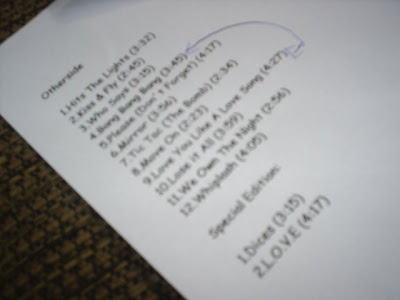 Otherside
1.Hits The Lights (3:32)
2.Kiss & Fly (2:45)
3.Who Says (3:15)
4.Bang Bang Bang (3:45)
5.Please (Don't Forget) (4:17)
6.Mirror (3:56)
7.Tic Tac (The Bomb) (2:34)
8.Move On (2:23)
9.Love You Like A Love Song (4:27)
10.Lose it All (3:59)
11.We Own The Night (2:56)
12.Whiplash (4:05)
Special Edition:
1.Dices (3:15)
2.L.O.V.E (4:17)